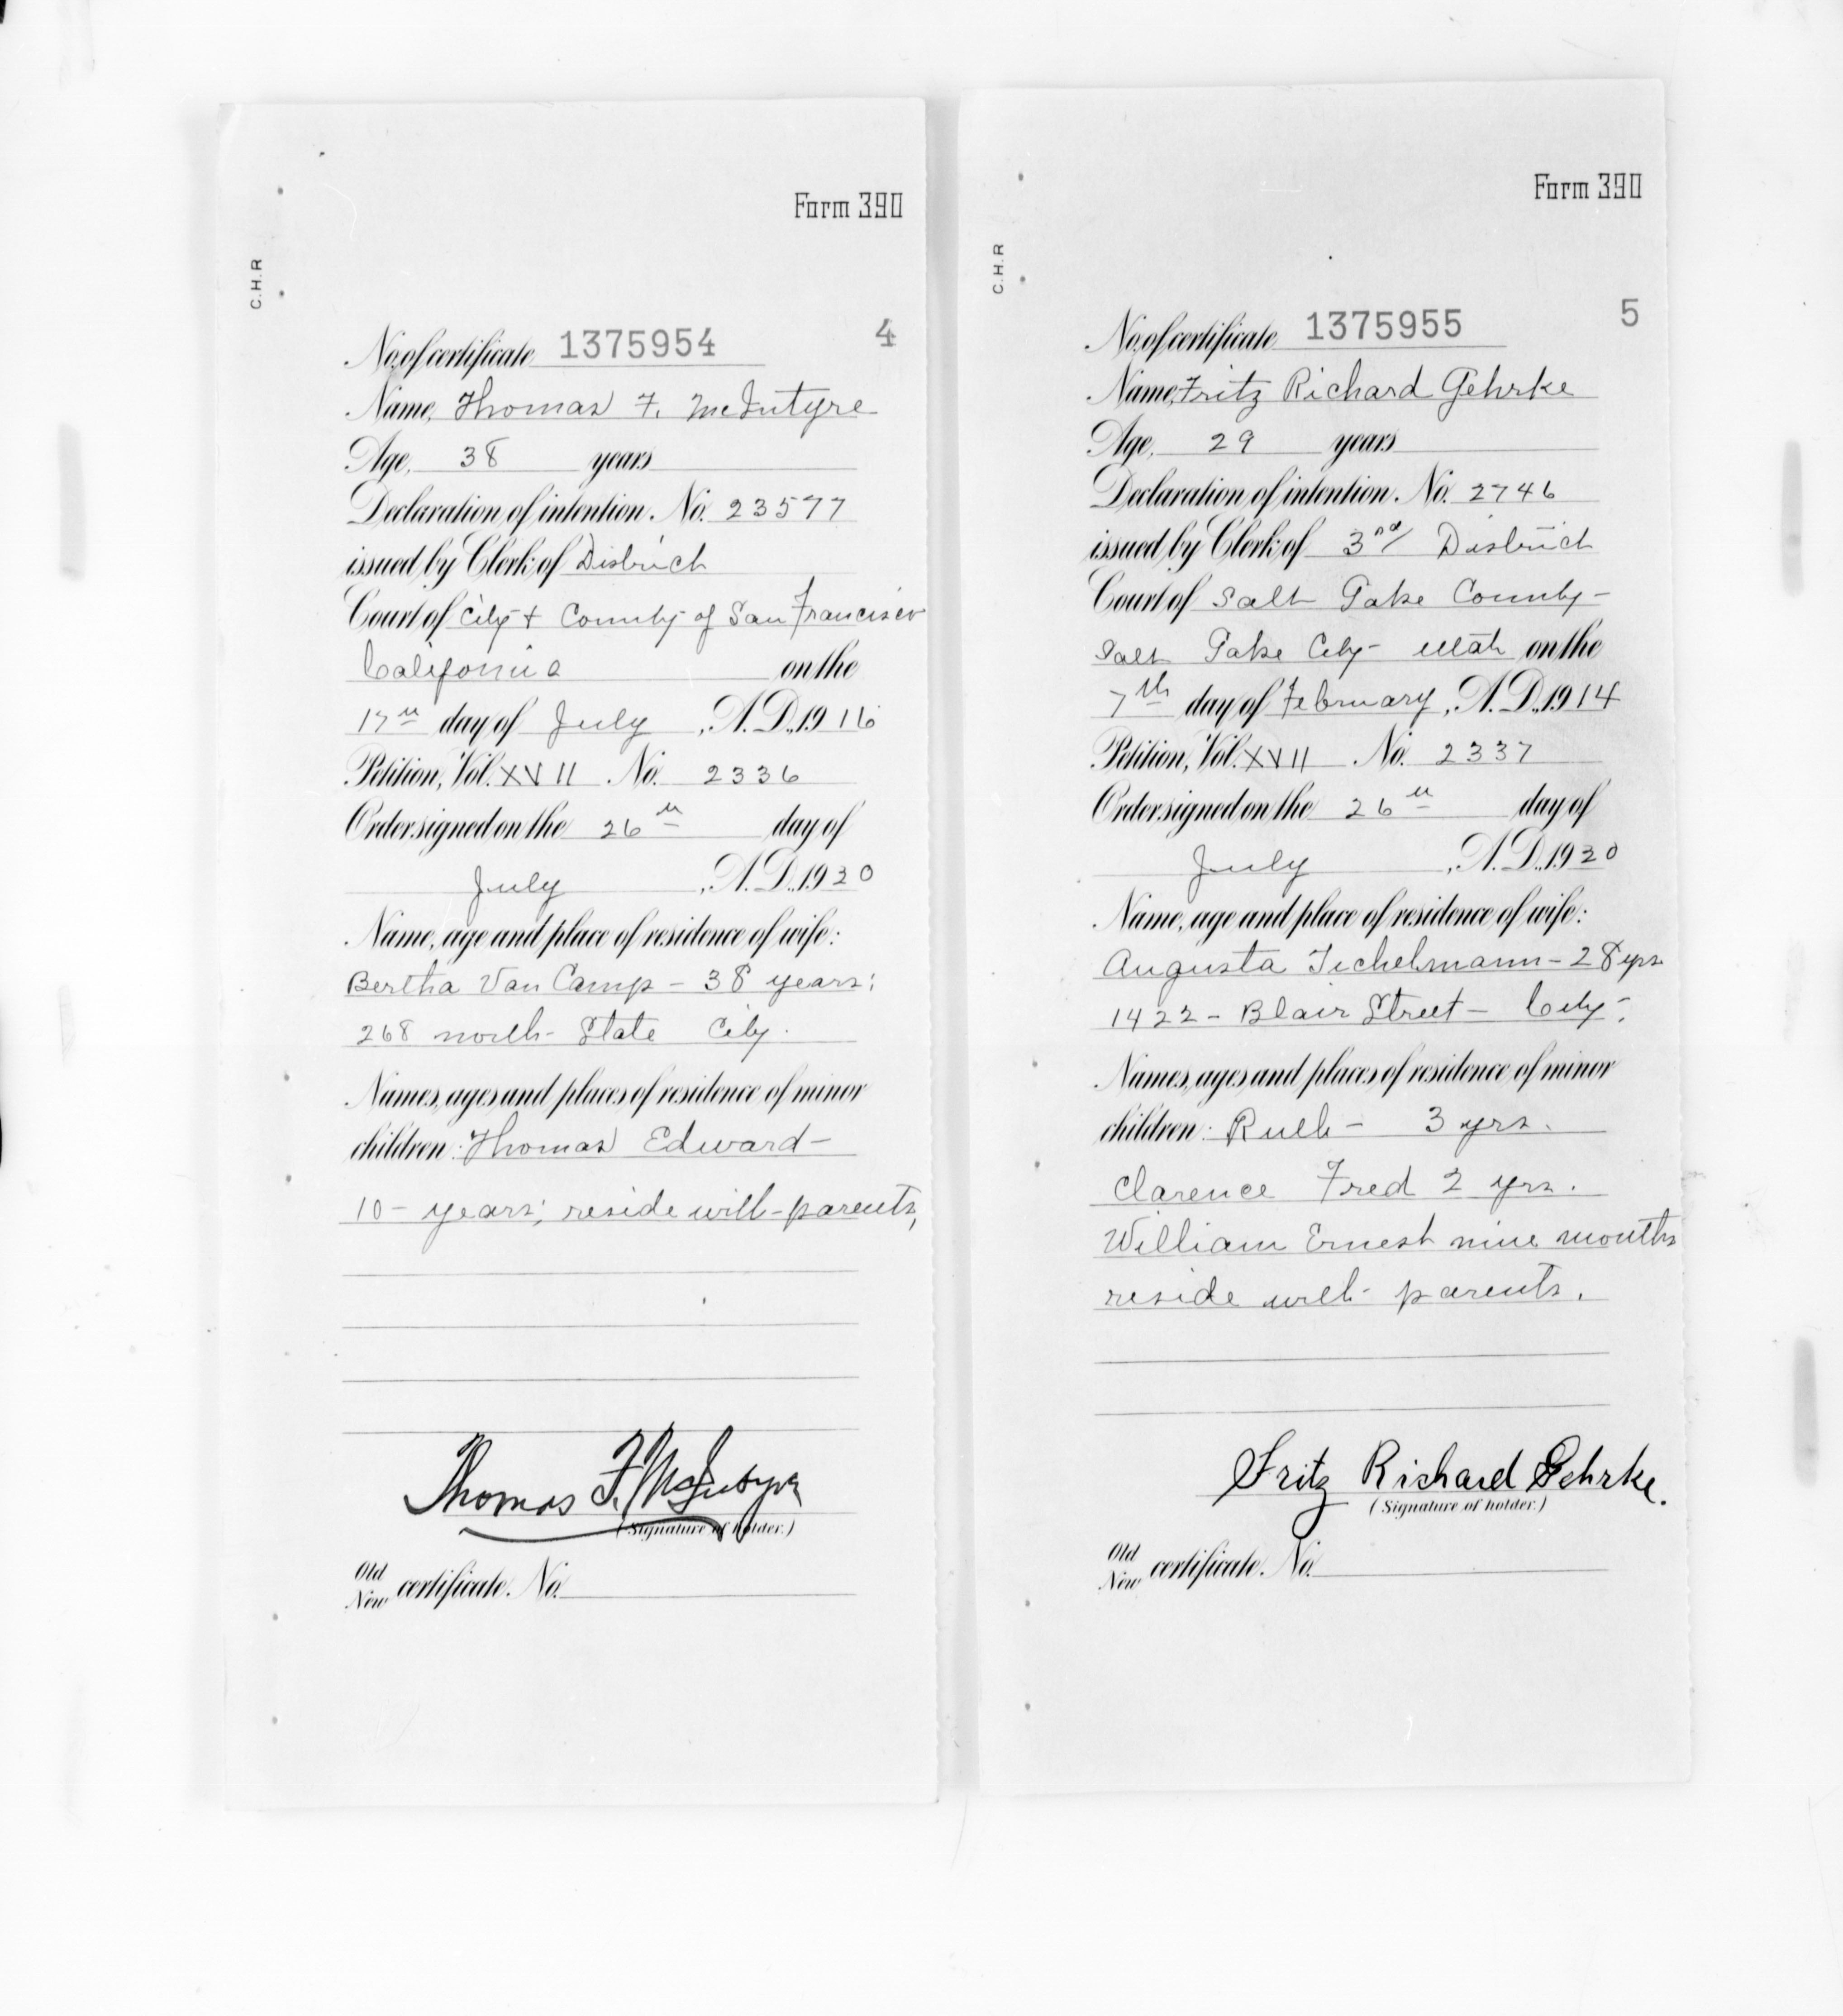 Form 390
C.H.R
No. of certificate 1375954 4
Name, Thomas F. McIntyre
Age, 38 years
Declaration of intention. No. 23577
issued by Clerk of District
Court of City & County of San Francisco
California on the
17th day of July, A.D., 1916
Petition, Vol. XVII No. 2336
Order signed on the 26th day of
July, A.D., 1920
Name, age and place of residence of wife:
Bertha Van Camp - 38 years;
268 north - State City.
Names, ages and places of residence of minor
children: Thomas Edward -
10 - years; reside with - parents,
Thomas F. McIntyre
(Signature of holder.)
Old
New certificate. No.
Form 390
C.H.R
No. of certificate 1375955 5
Name, Fritz Richard Gehrke
Age, 29 years
Declaration of intention. No. 2746
issued by Clerk of 3rd District
Court of Salt Lake County -
Salt Lake City - Utah on the
7th day of February, A.D., 1914
Petition, Vol. XVII No. 2337
Order signed on the 26th day of
July, A.D., 1920
Name, age and place of residence of wife:
Augusta Tichelmann - 28 yrs
1422 - Blair Street - City;
Names, ages and places of residence of minor
children: Ruth - 3 yrs.
Clarence Fred 2 yrs.
William Ernest nine months
reside with - parents.
Fritz Richard Gehrke.
(Signature of holder.)
Old
New certificate. No.